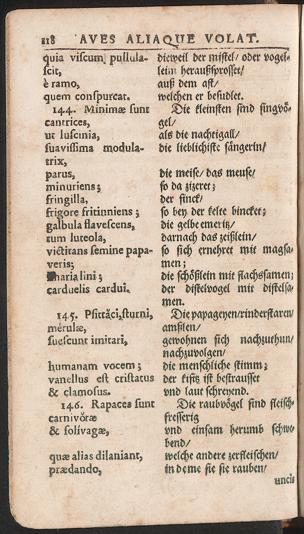 118 AVES ALIAQUE VOLAT.
quia viscum pullula- dieweil der mistel/ oder vogel-
scit, leim heraußsprosset/
è ramo, auß dem ast/
quem conspurcat. welchen er besudlet.
144. Minimæ sunt Die kleinsten sind singvö-
cantrices, gel/
ut luscinia, als die nachtigall/
suavissima modula- die lieblichste sängerin/
trix,
parus, die meise/ das meuse/
minuriens; so da zizeret;
fringilla, der finck/
frigore fritinniens; so bey der kelte bincket;
galbula flavescens, die gelbe emeritz/
tum luteola, darnach das zeißlein/
victitans semine papa- so sich ernehret mit magsa-
veris; men;
linariæ lini; die schößlein mit flachssamen;
carduelis cardui. der distelvogel mit distelsa-
men.
145. Psittàci, sturni, Die papageyen/ rinderstaren/
mérulæ, amslen/
suescunt imitari, gewohnen sich nachzuthun/
nachzuvolgen/
humanam vocem; die menschliche stimm;
vanellus est cristatus der kifitz ist bestrausset
& clamosus. vnd laut schreyend.
146. Rapaces sunt Die raubvögel sind fleisch-
carnivóræ fresserig
& solivagæ, vnd einsam herumb schwe-
bend/
quæ alias dilaniant, welche andere zerfleischen/
prædando, indeme sie sie rauben/
uncis